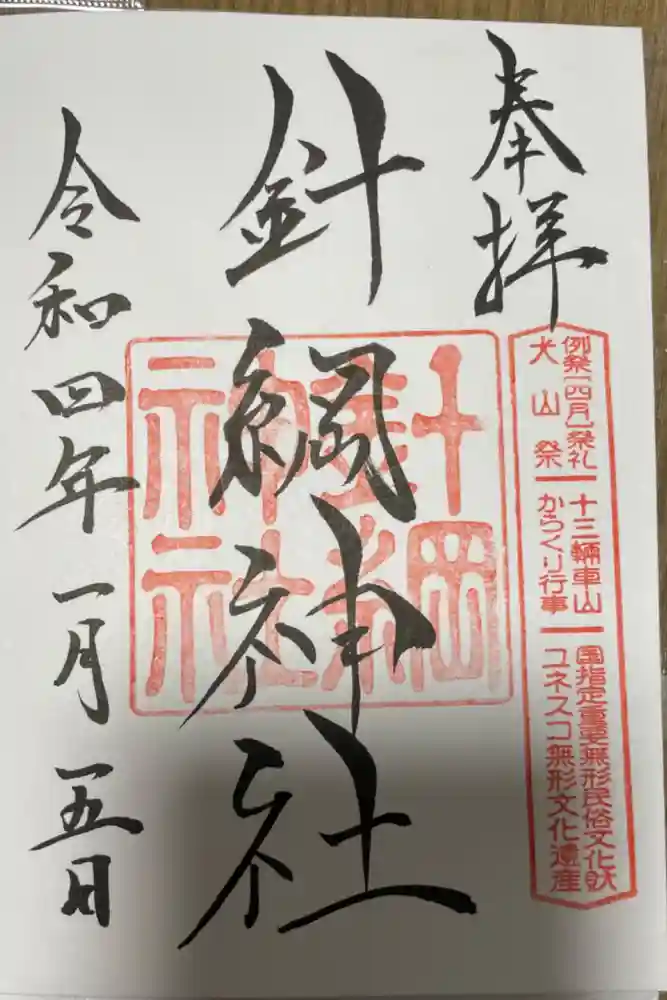 奉拝
例祭[四月]祭礼
犬山祭
十三輛車山
からくり行事
国指定重要無形民俗文化財
ユネスコ無形文化遺産
針綱神社
針綱
神社
令和四年一月一五日